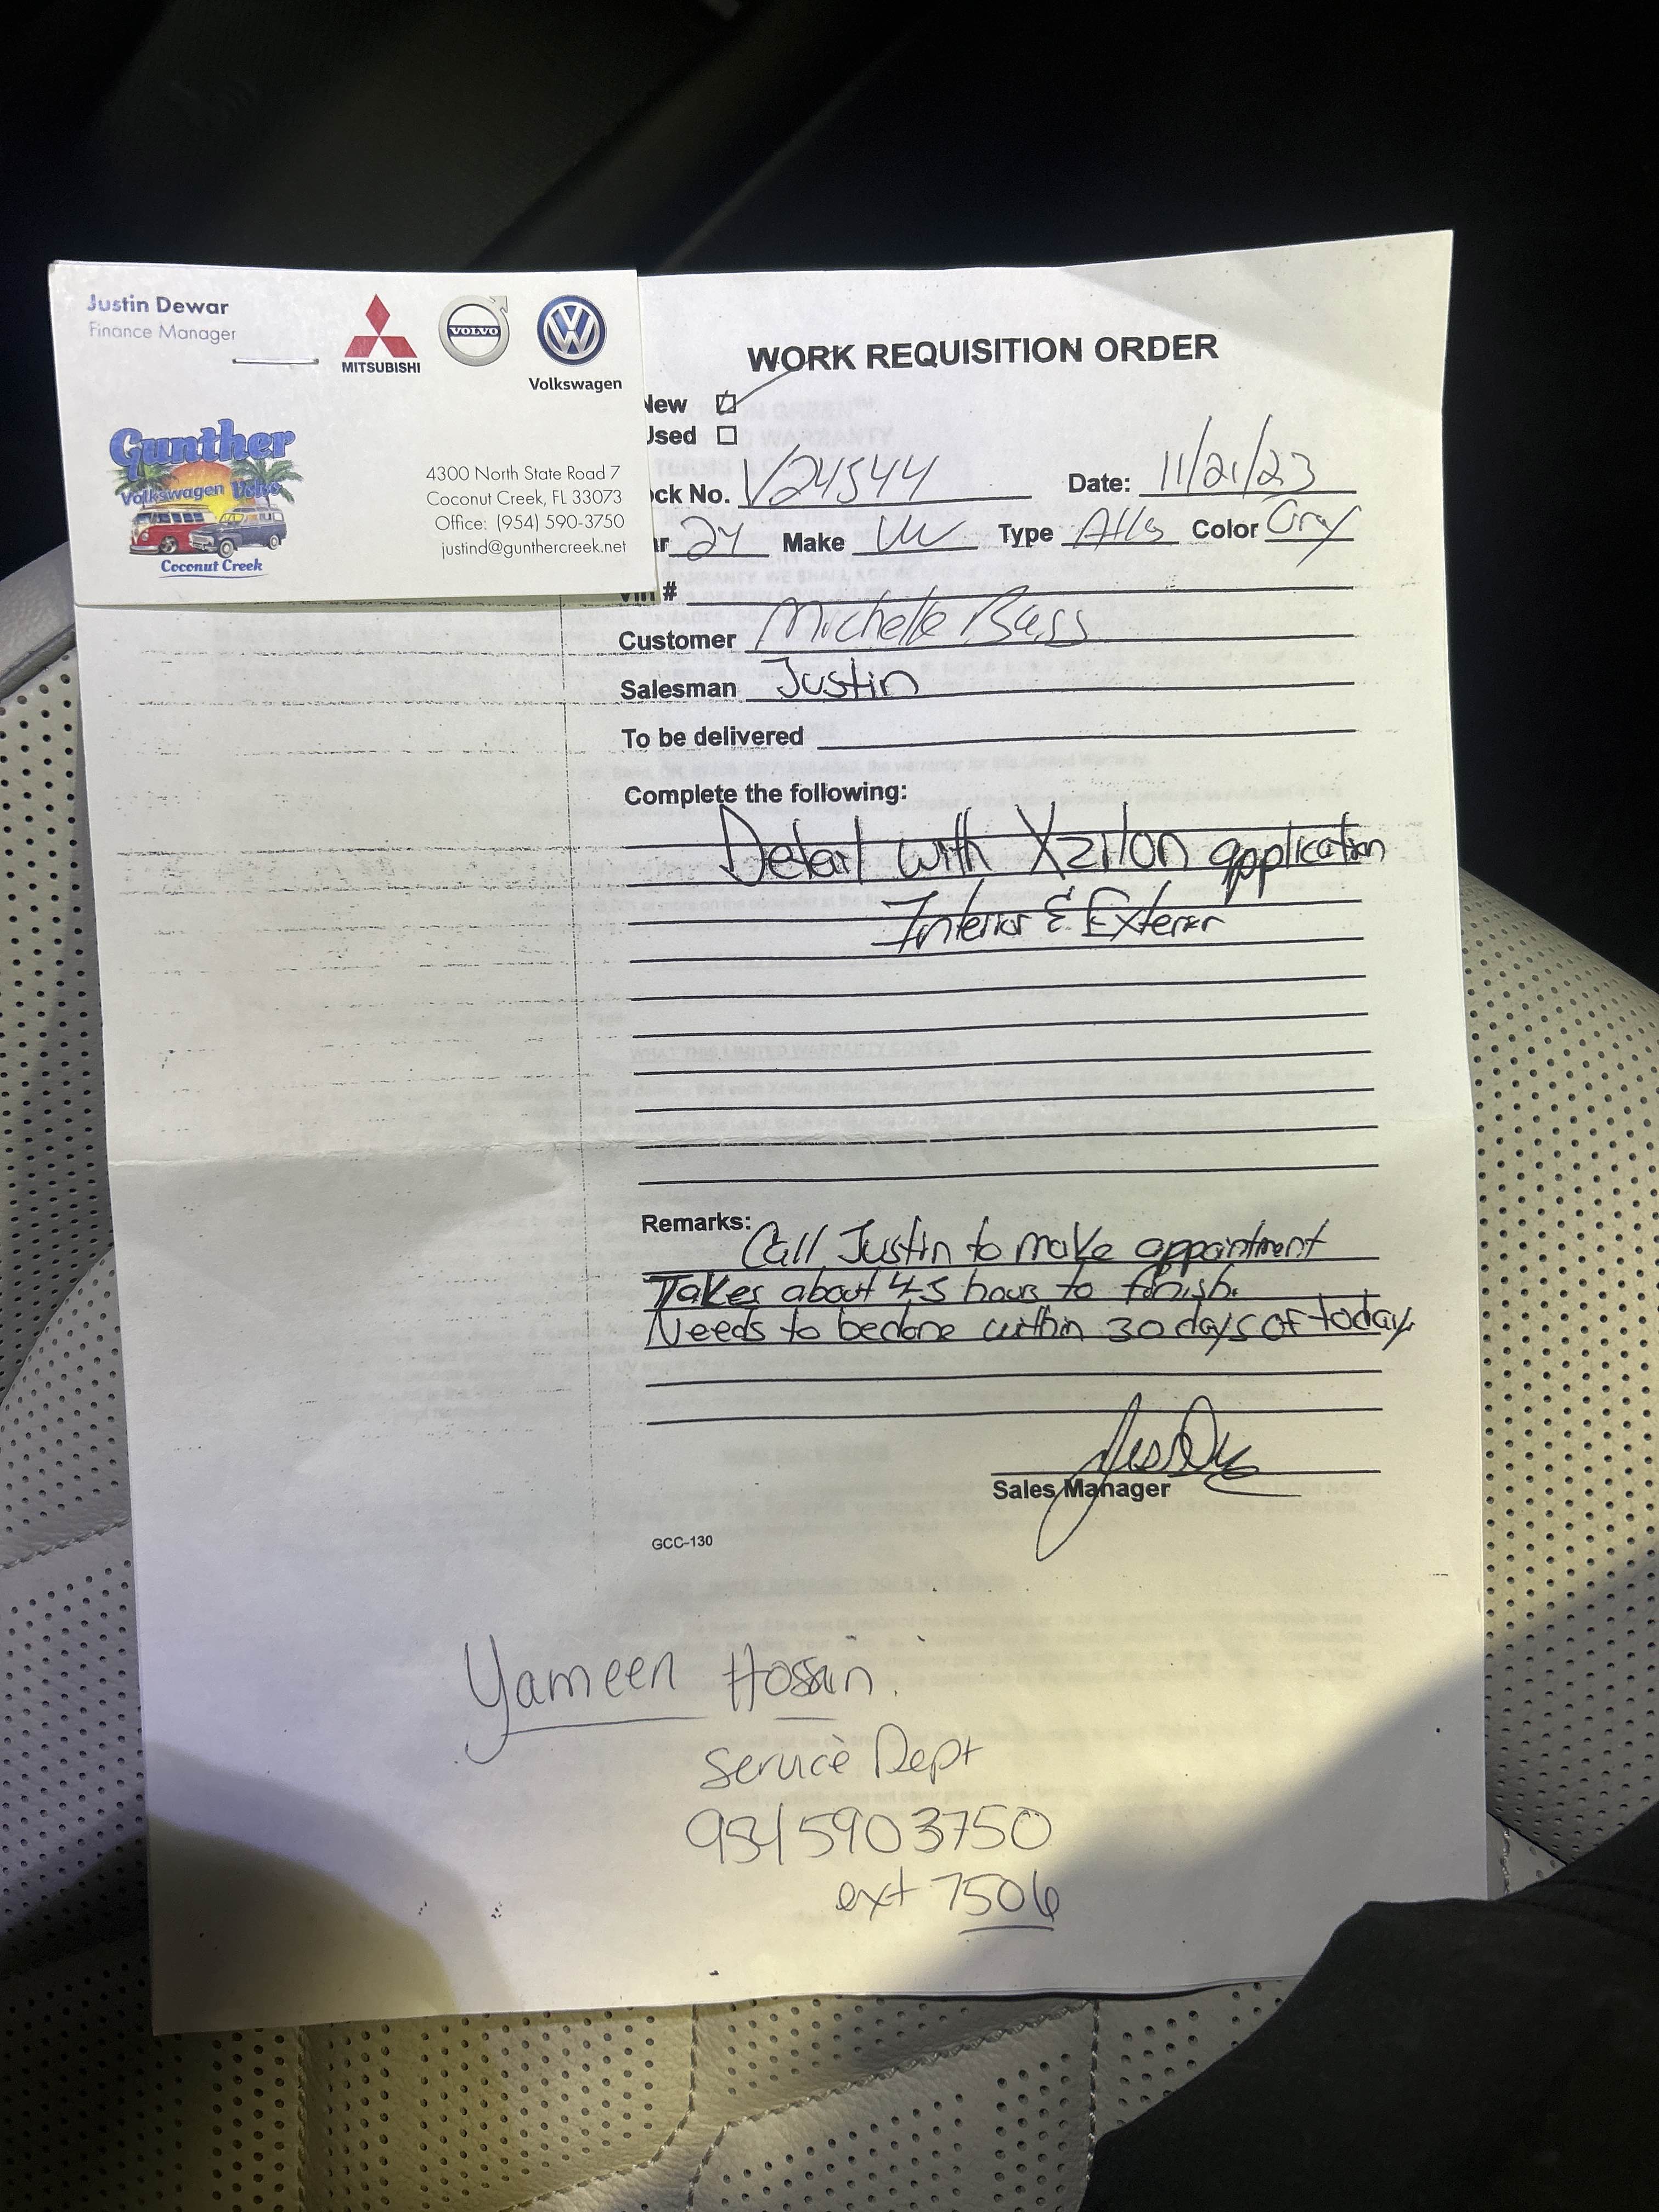 Justin Dewar
Finance Manager
MITSUBISHI
VOLVO
Volkswagen
Gunther
Volkswagen Volvo
Coconut Creek
4300 North State Road 7
Coconut Creek, FL 33073
Office: (954) 590-3750
justind@gunthercreek.net
WORK REQUISITION ORDER
New
Used
ck No. V24544 Date: 11/21/23
ar 24 Make VW Type Atls Color Gray
Vin #
Customer Michelle Bass
Salesman Justin
To be delivered
Complete the following:
Detail with Xzilon application
Interior & Exterior
Remarks: Call Justin to make appointment
Takes about 4-5 hours to finish.
Needs to be done within 30 days of today
Sales Manager
GCC-130
Yameen Hossain.
Service Dept
954 5903750
ext 7506